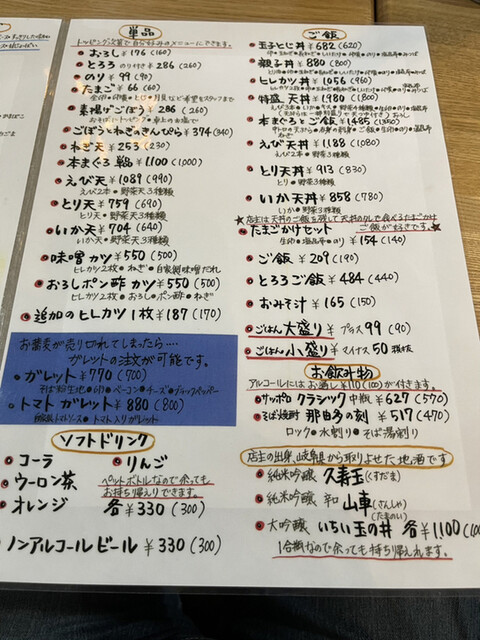 単品
トッピング次第で自分好みのメニューにできます。
おろし ¥176 (160)
とろろ のり付き ¥286 (260)
のり ¥99 (90)
たまご ¥66 (60)
素揚げごぼう ¥286 (260)
ごぼうとねぎのきんぴら ¥374 (340)
ねぎ天 ¥253 (230)
本まぐろ ¥1100 (1000)
えび天 ¥1089 (990)
えび2本・野菜天3種類
とり天 ¥759 (690)
とり天・野菜天3種類
いか天 ¥704 (640)
いか天・野菜天3種類
味噌カツ ¥550 (500)
ヒレカツ2枚・ねぎ・自家製味噌だれ
おろしポン酢カツ ¥550 (500)
ヒレカツ2枚・おろし・ポン酢・ねぎ
追加のヒレカツ1枚 ¥187 (170)
お蕎麦が売り切れてしまったら....
ガレットの注文が可能です。
ガレット ¥770 (700)
そば粉生地・卵・ベーコン・チーズ・ブラックペッパー
トマトガレット ¥880 (800)
自家製トマトソース・トマト入りガレット
ソフトドリンク
コーラ
りんご
ウーロン茶
ペットボトルなので余っても
お持ち帰りできます。
オレンジ
各 ¥330 (300)
ノンアルコールビール ¥330 (300)
ご飯
玉子とじ丼 ¥682 (620)
親子丼 ¥880 (800)
ヒレカツ丼 ¥1056 (960)
特盛 天丼 ¥1980 (1800)
本まぐろとご飯 ¥1485 (1350)
えび天丼 ¥1188 (1080)
えび2本・野菜天3種類
とり天丼 ¥913 (830)
とり・野菜天3種類
いか天丼 ¥858 (780)
いか・野菜天3種類
★店主は天丼のご飯を残して天丼のタレで食べるたまごかけご飯が好きです。★
たまごかけセット
生卵・塩昆布・のり ¥154 (140)
ご飯 ¥209 (190)
とろろご飯 ¥484 (440)
おみそ汁 ¥165 (150)
ごはん 大盛り プラス 99 (90)
ごはん 小盛り マイナス 50 税抜
お飲み物
アルコールにはお通し¥110(100)が付きます。
サッポロ クラシック 中瓶 ¥627 (570)
そば焼酎 那由多の刻 ¥517 (470)
ロック・水割り・そば湯割り
店主の出身、岐阜県から取りよせた地酒です
純米吟醸 久寿玉 (くすだま)
純米吟醸 和 山車 (さんしゃ)
大吟醸 いちい玉の井 (たまのい) 各 ¥1,100 (100
1合瓶なので余っても持ち帰れます。